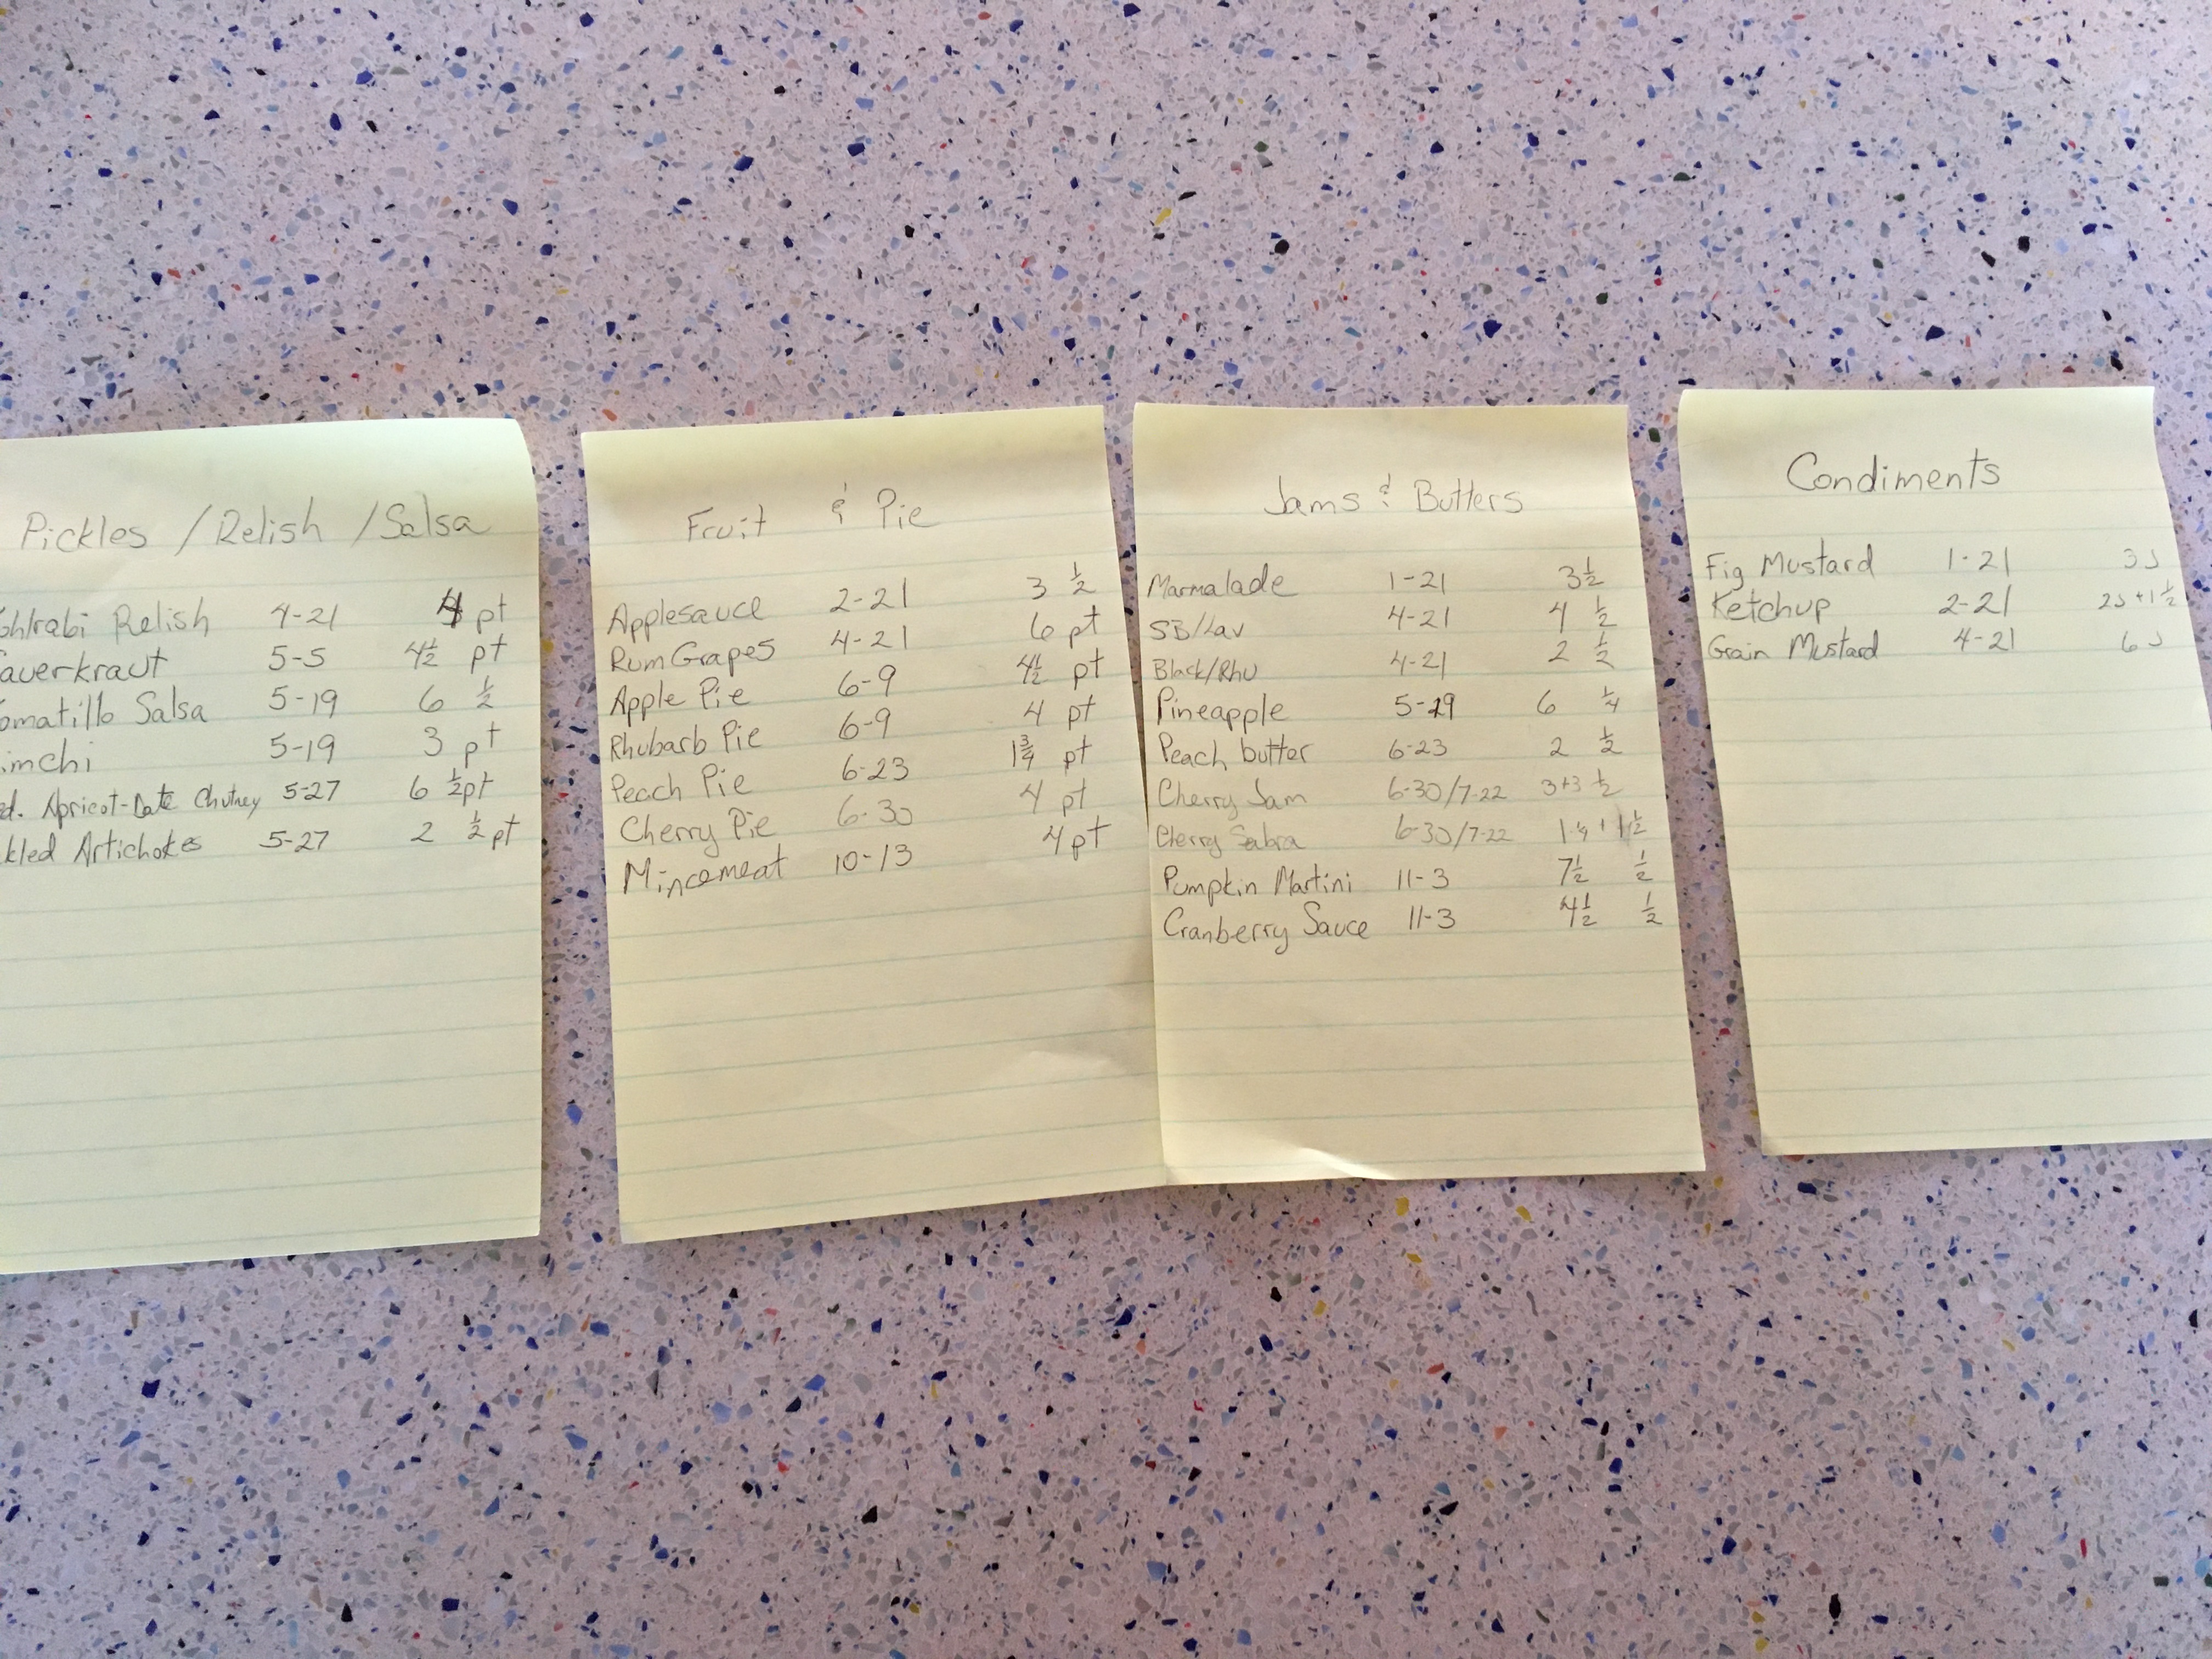 Pickles / Relish / Salsa
ohlrabi Relish 4-21 4 pt
auerkraut 5-5 4½ pt
omatillo Salsa 5-19 6 ½
imchi 5-19 3 pt
d. Apricot-Date Chutney 5-27 6 ½pt
kled Artichokes 5-27 2 ½pt
Fruit & Pie
Applesauce 2-21 3 ½
RumGrapes 4-21 6 pt
Apple Pie 6-9 4½ pt
Rhubarb Pie 6-9 4 pt
Peach Pie 6-23 1¾ pt
Cherry Pie 6-30 4 pt
Mincemeat 10-13 4pt
Jams & Butters
Marmalade 1-21 3½
SB/Lav 4-21 4 ½
Black/Rhu 4-21 2 ½
Pineapple 5-29 6 ¼
Peach butter 6-23 2 ½
Cherry Jam 6-30/7-22 3+3 ½
Cherry Sabra 6-30/7-22
Pumpkin Martini 11-3 7½ ½
Cranberry Sauce 11-3 4½ ½
Condiments
Fig Mustard 1-21 3J
Ketchup 2-21 2J+1 ½
Grain Mustard 4-21 6J